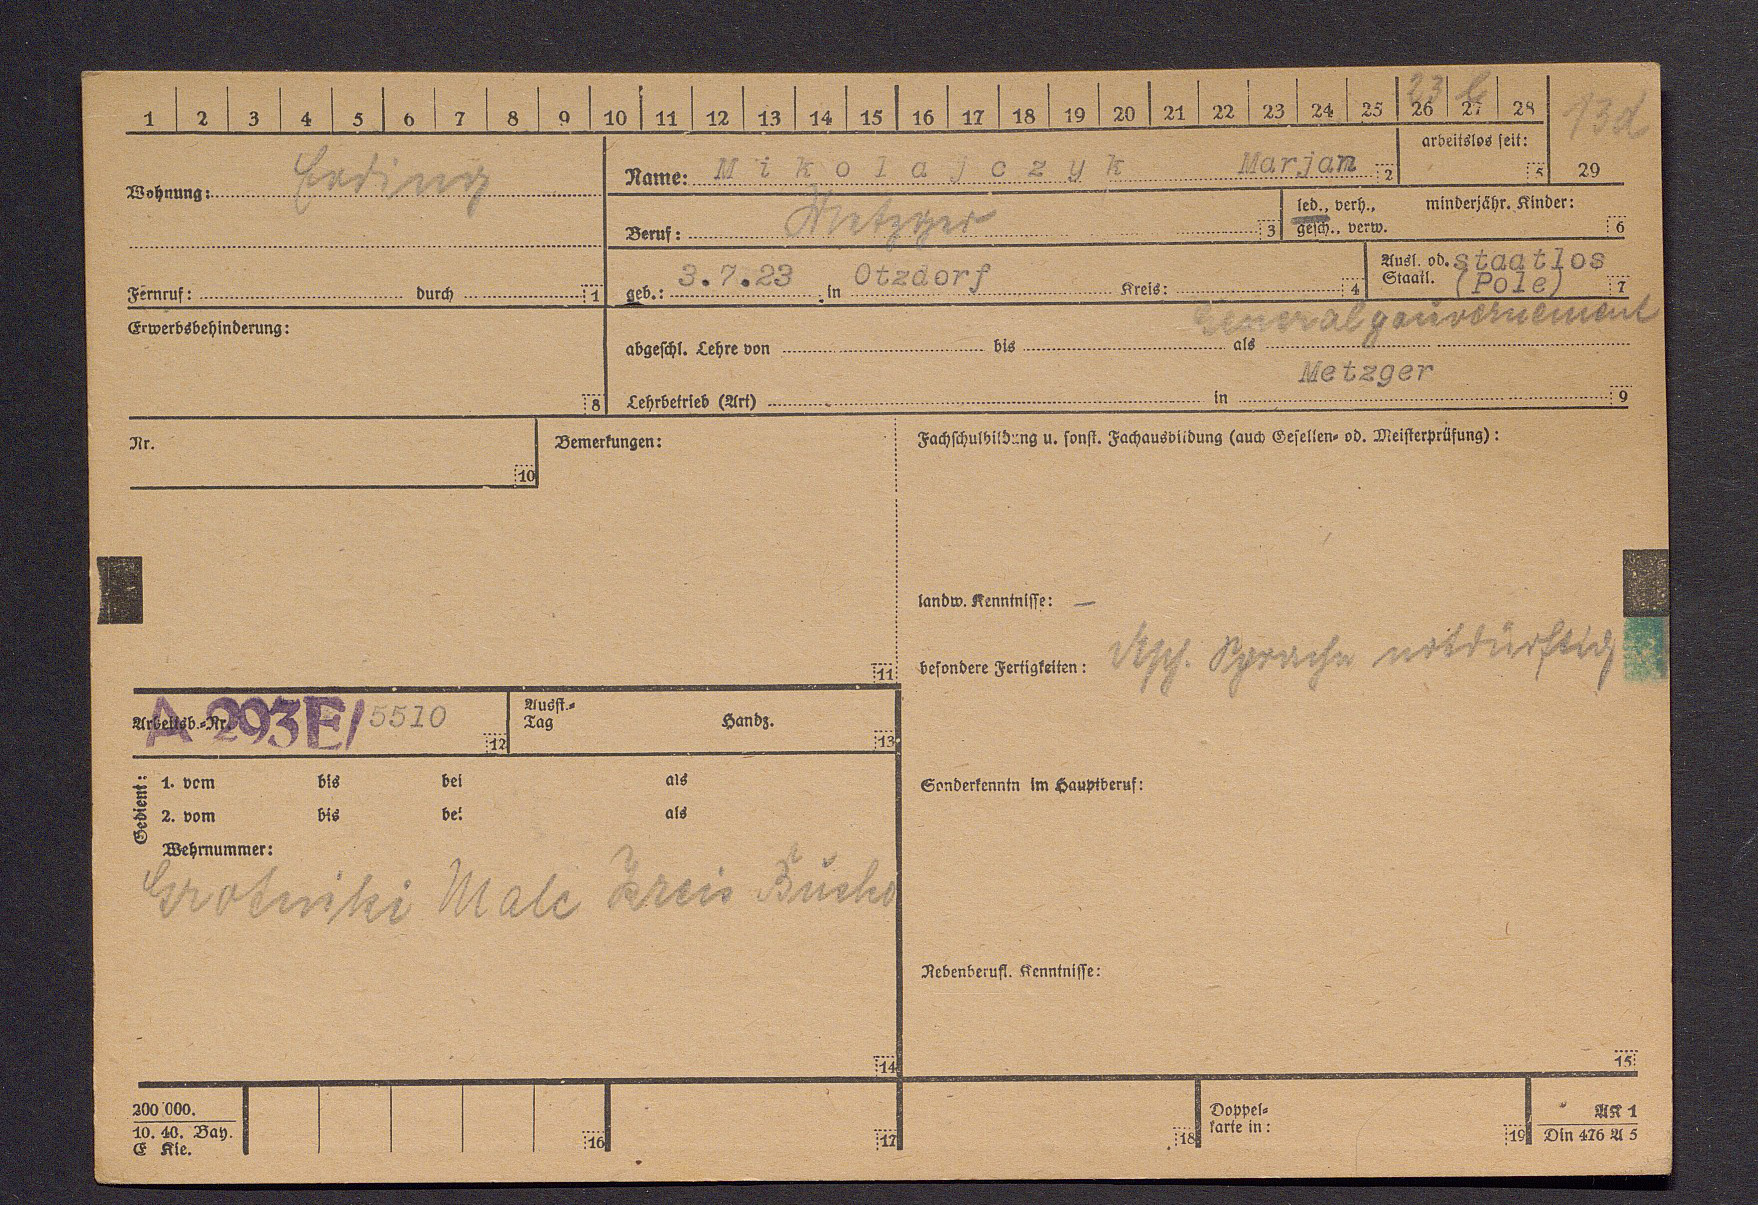 1 2 3 4 5 6 7 8 9 10 11 12 13 14 15 16 17 18 19 20 21 22 23 24 25 26 27 28
23 b
13d
29
arbeitslos seit: 5
Wohnung: Erding
Name: Mikolajczyk Marjan 2
Beruf: Metzger 3
led., verh., gesch., verw.
minderjähr. Kinder: 6
Fernruf: durch 1
geb.: 3.7.23 in Otzdorf Kreis: 4
Ausl. od. Staatl. staatlos (Pole) 7
Generalgouvernement
Erwerbsbehinderung: 8
abgeschl. Lehre von bis als
Metzger
Lehrbetrieb (Art) in 9
Nr. 10
Bemerkungen: 11
Fachschulbildung u. sonst. Fachausbildung (auch Gesellen- od. Meisterprüfung):
landw. Kenntnisse: —
besondere Fertigkeiten: Sprache notdürftig
Arbeitsb.-Nr. A 293E/5510 12
Ausst.-Tag Handz. 13
Gedient:
1. vom bis bei als
2. vom bis bei als
Wehrnummer:
Grotniki Male Kreis Busko
14
Sonderkenntn im Hauptberuf:
Nebenberufl. Kenntnisse:
15
200 000.
10. 40. Bay.
E Kie.
16
17
18
Doppelkarte in: 19
AK 1
Din 476 A 5